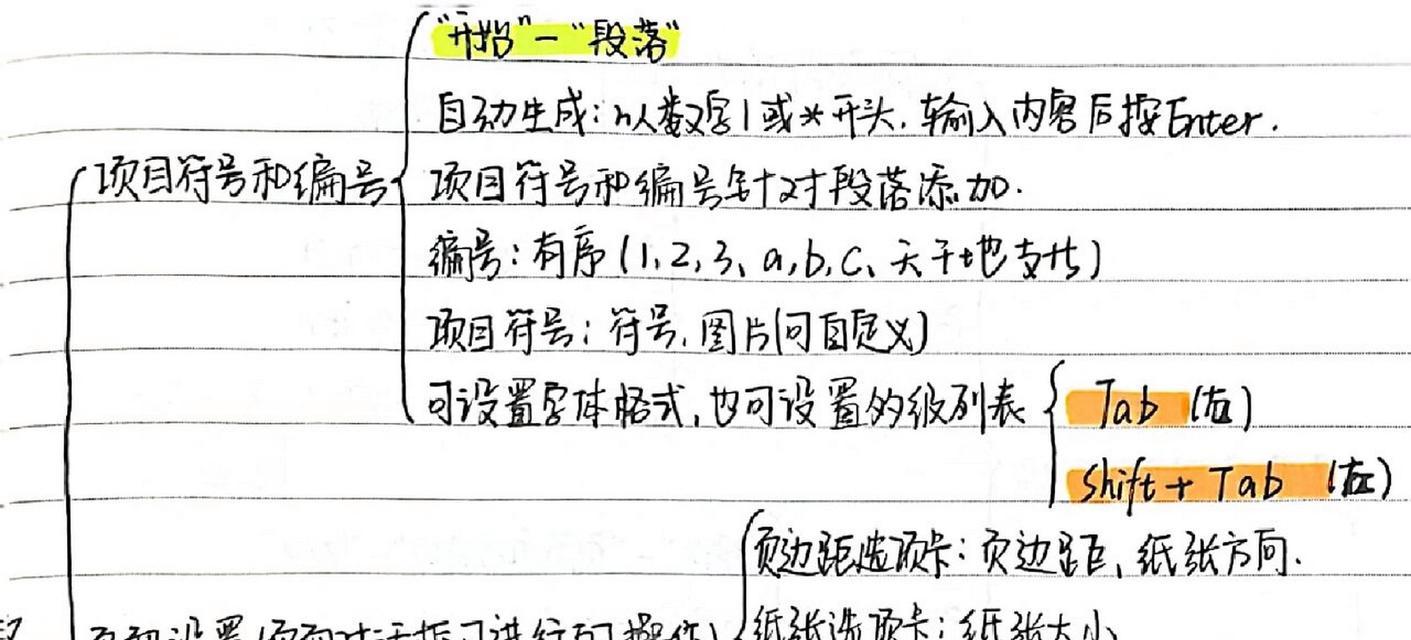 "开始"－"段落"
自动生成：以数字1或*开头，输入内容后按Enter.
项目符号和编号
项目符号和编号针对段落添加.
编号：有序(1,2,3、a,b,c、天干地支he)
项目符号：符号,图片(可自定义)
可设置字体格式,也可设置的级列表
Tab (右)
Shift+Tab (左)
页边距选项卡：页边距、纸张方向.
纸张选项卡：纸张大小